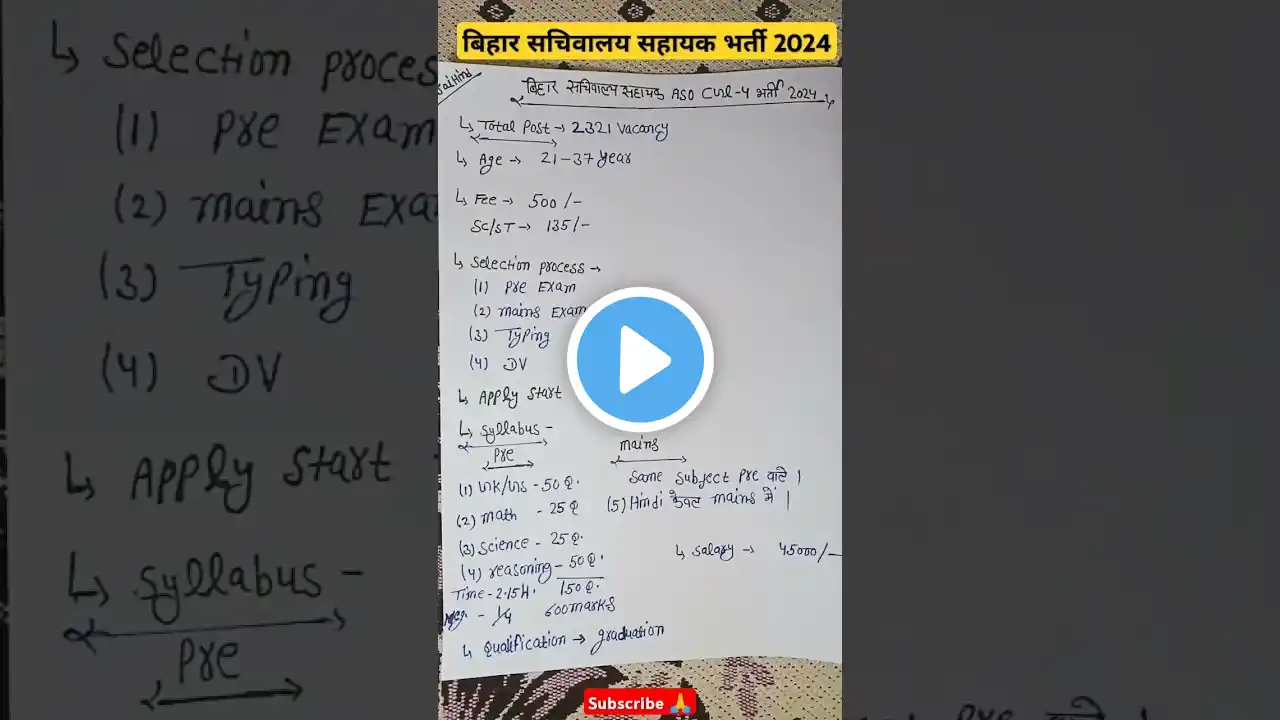 बिहार सचिवालय सहायक भर्ती 2024
Jai Hind
बिहार सचिवालय सहायक ASO CGL-4 भर्ती 2024
↳ Total Post → 2321 Vacancy
↳ Age → 21-37 year
↳ Fee → 500/-
SC/ST → 135/-
↳ Selection process →
(1) Pre Exam
(2) mains Exam
(3) Typing
(4) DV
↳ Apply Start
↳ Syllabus -
Pre
(1) GK/GS - 50 Q.
(2) math - 25 Q
(3) Science - 25 Q.
(4) reasoning - 50 Q.
Time - 2.15 H. 150 Q.
Neg. - 1/4 600 marks
mains
Same Subject Pre वाले |
(5) Hindi केवल mains में |
↳ Salary → 45000/-
↳ Qualification → graduation
Subscribe 🙏
↳ Selection proces
(1) Pre Exam
(2) mains Exa
(3) Typing
(4) DV
↳ Apply Start
↳ Syllabus -
Pre